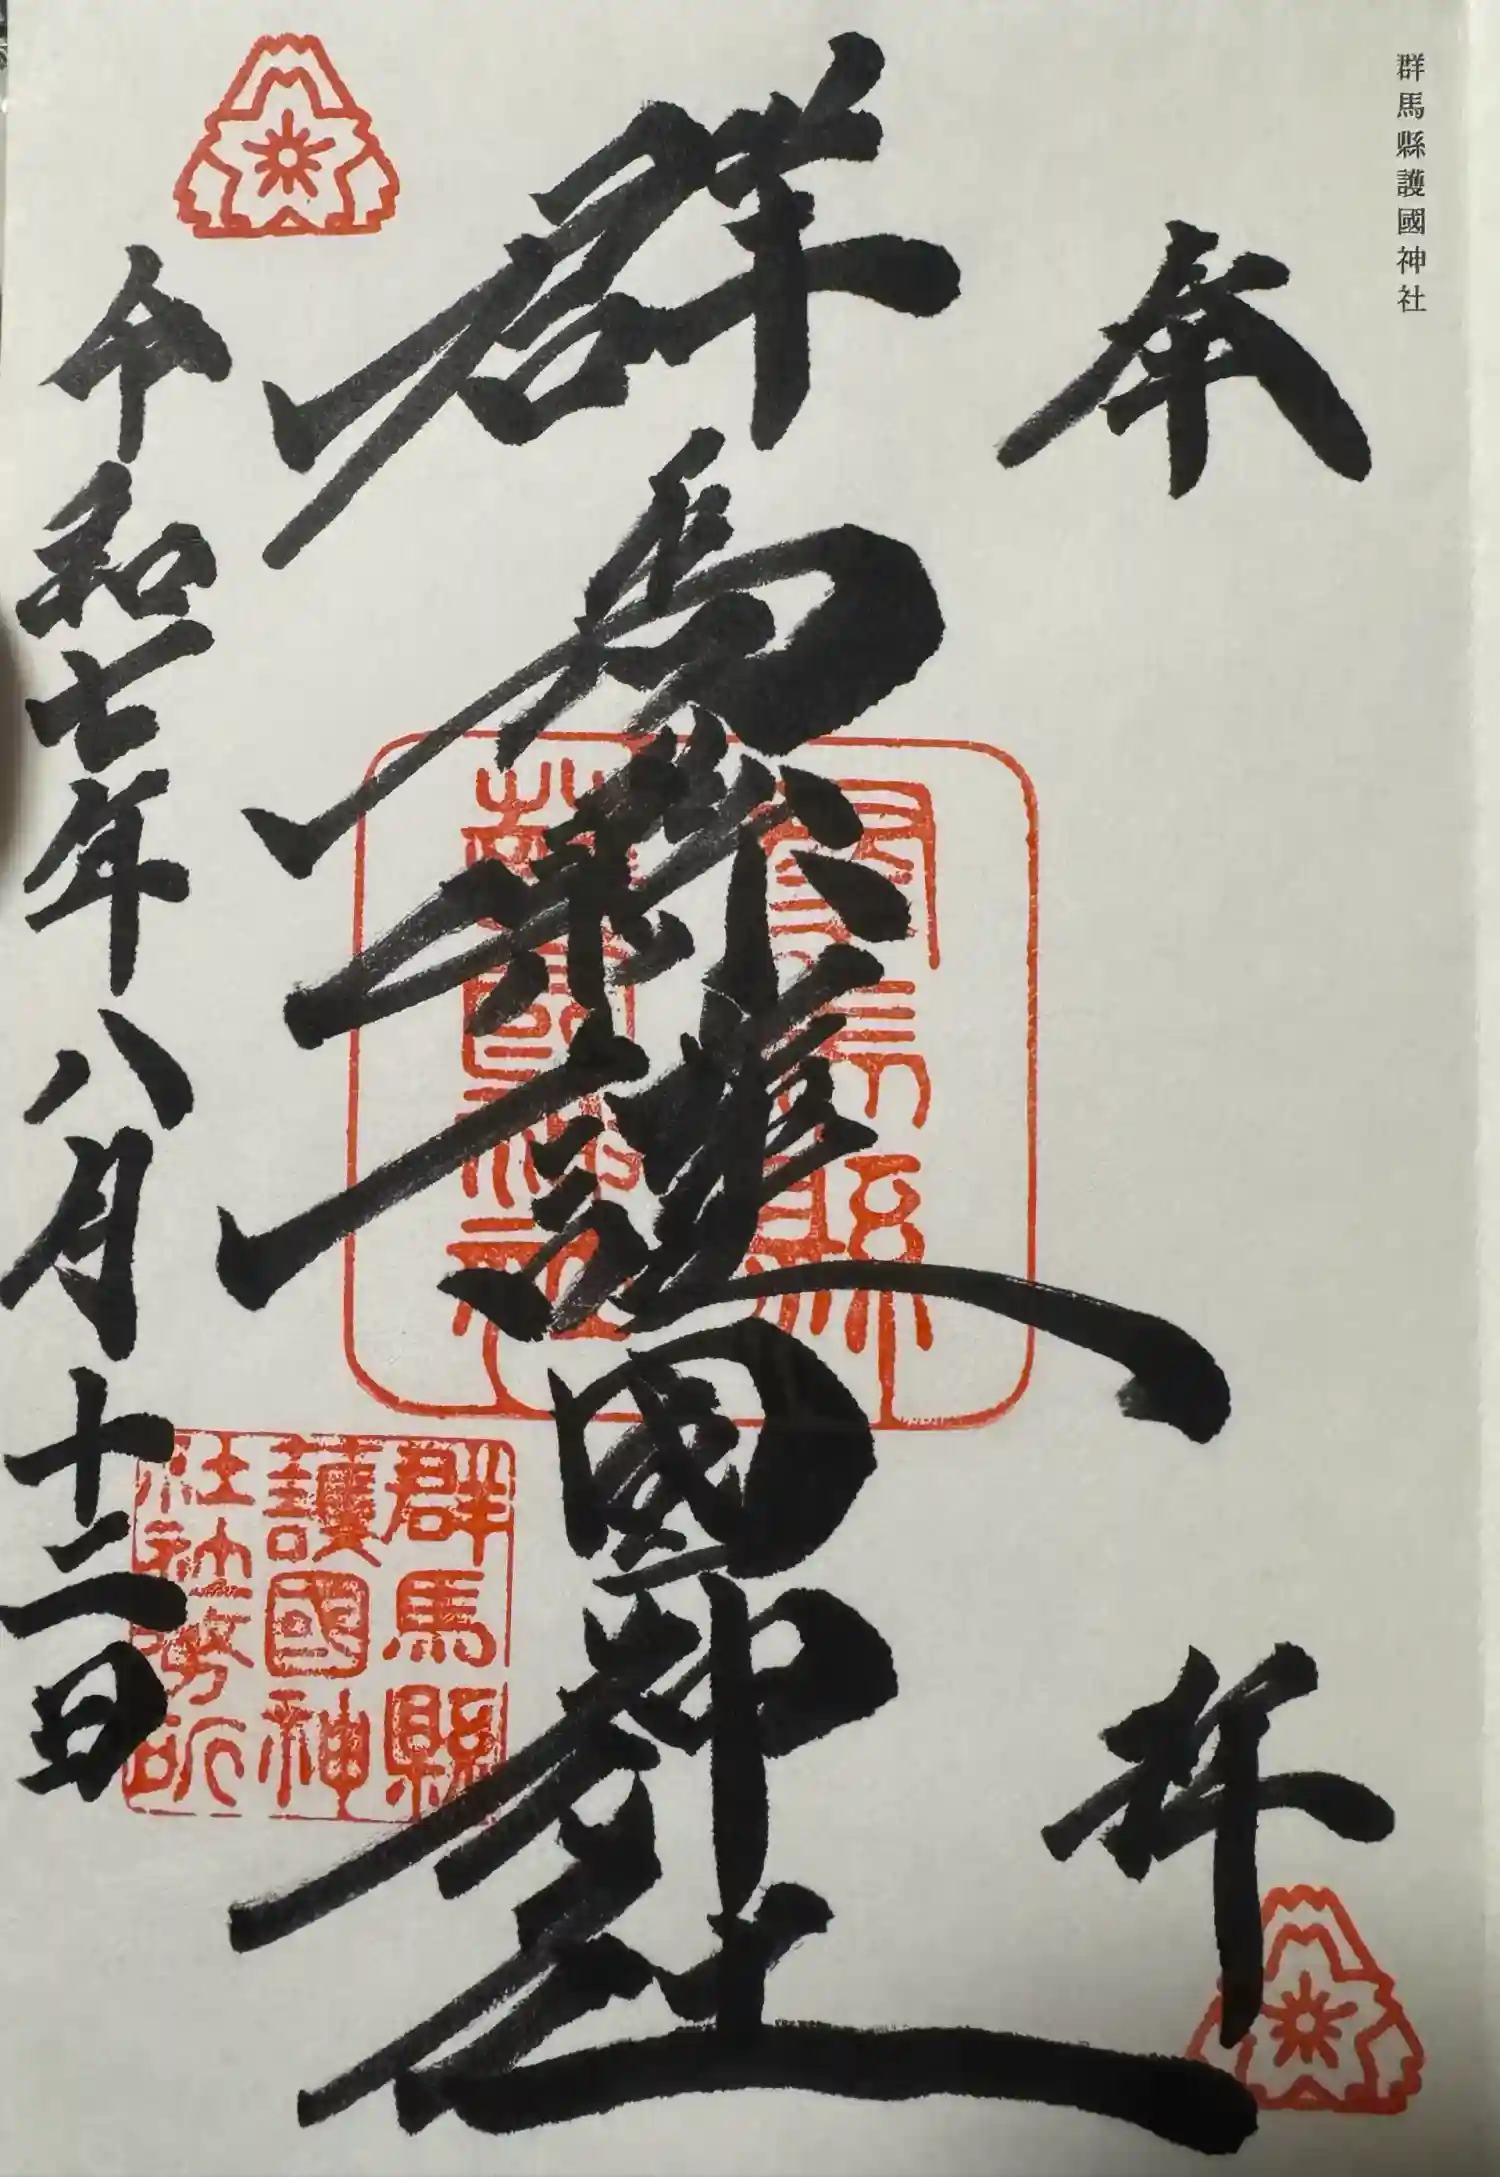 群馬縣護國神社
奉拝
群馬縣護國神社
群馬縣護國神社
群馬縣
護國神
社社務所
令和七年八月十二日